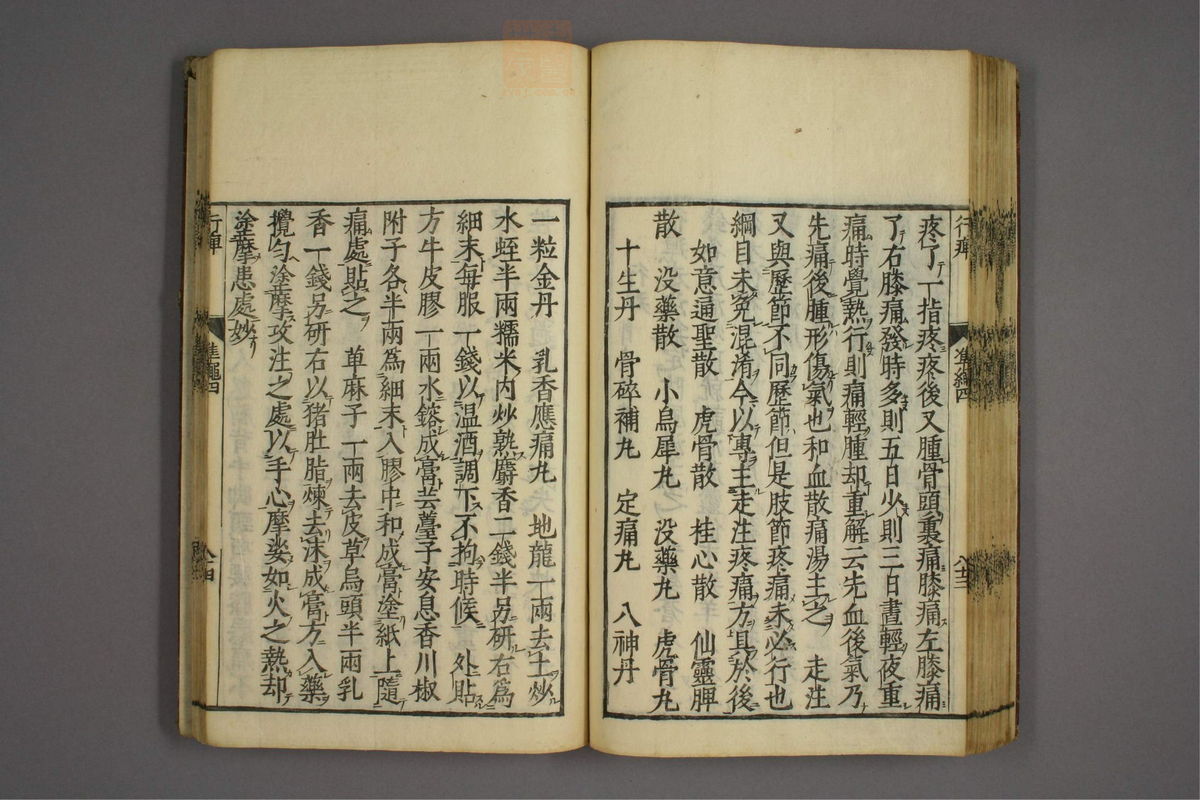 疼了一指疼疼後又腫骨頭裏痛膝痛左膝痛
了右膝痛發時多則五日少則三日晝輕夜重
痛時覺熱行則痛輕腫却重解云先血後氣乃
先痛後腫形傷氣也和血散痛湯主之　走注
又與歷節不同歷節但是肢節疼痛未必行也
綱目未免混淆今以專主走注疼痛方具於後
如意通聖散　虎骨散　桂心散　仙靈脾
散　没藥散　小烏犀丸　没藥丸　虎骨丸
十生丹　骨碎補丸　定痛丸　八神丹
行痺
準繩四
一粒金丹　乳香應痛丸　地龍一兩去土炒
水蛭半兩糯米内炒熟麝香二錢半另研右為
細末每服一錢以温酒調下不拘時候　外貼
方牛皮膠一兩水鎔成膏芸薹子安息香川椒
附子各半兩為細末入膠中和成膏塗紙上隨
痛處貼之　草麻子一兩去皮草烏頭半兩乳
香一錢另研右以猪肚脂煉去沫成膏方入藥
攪勻塗摩攻注之處以手心摩娑如火之熱却
塗摩患處妙
行痺
準繩四